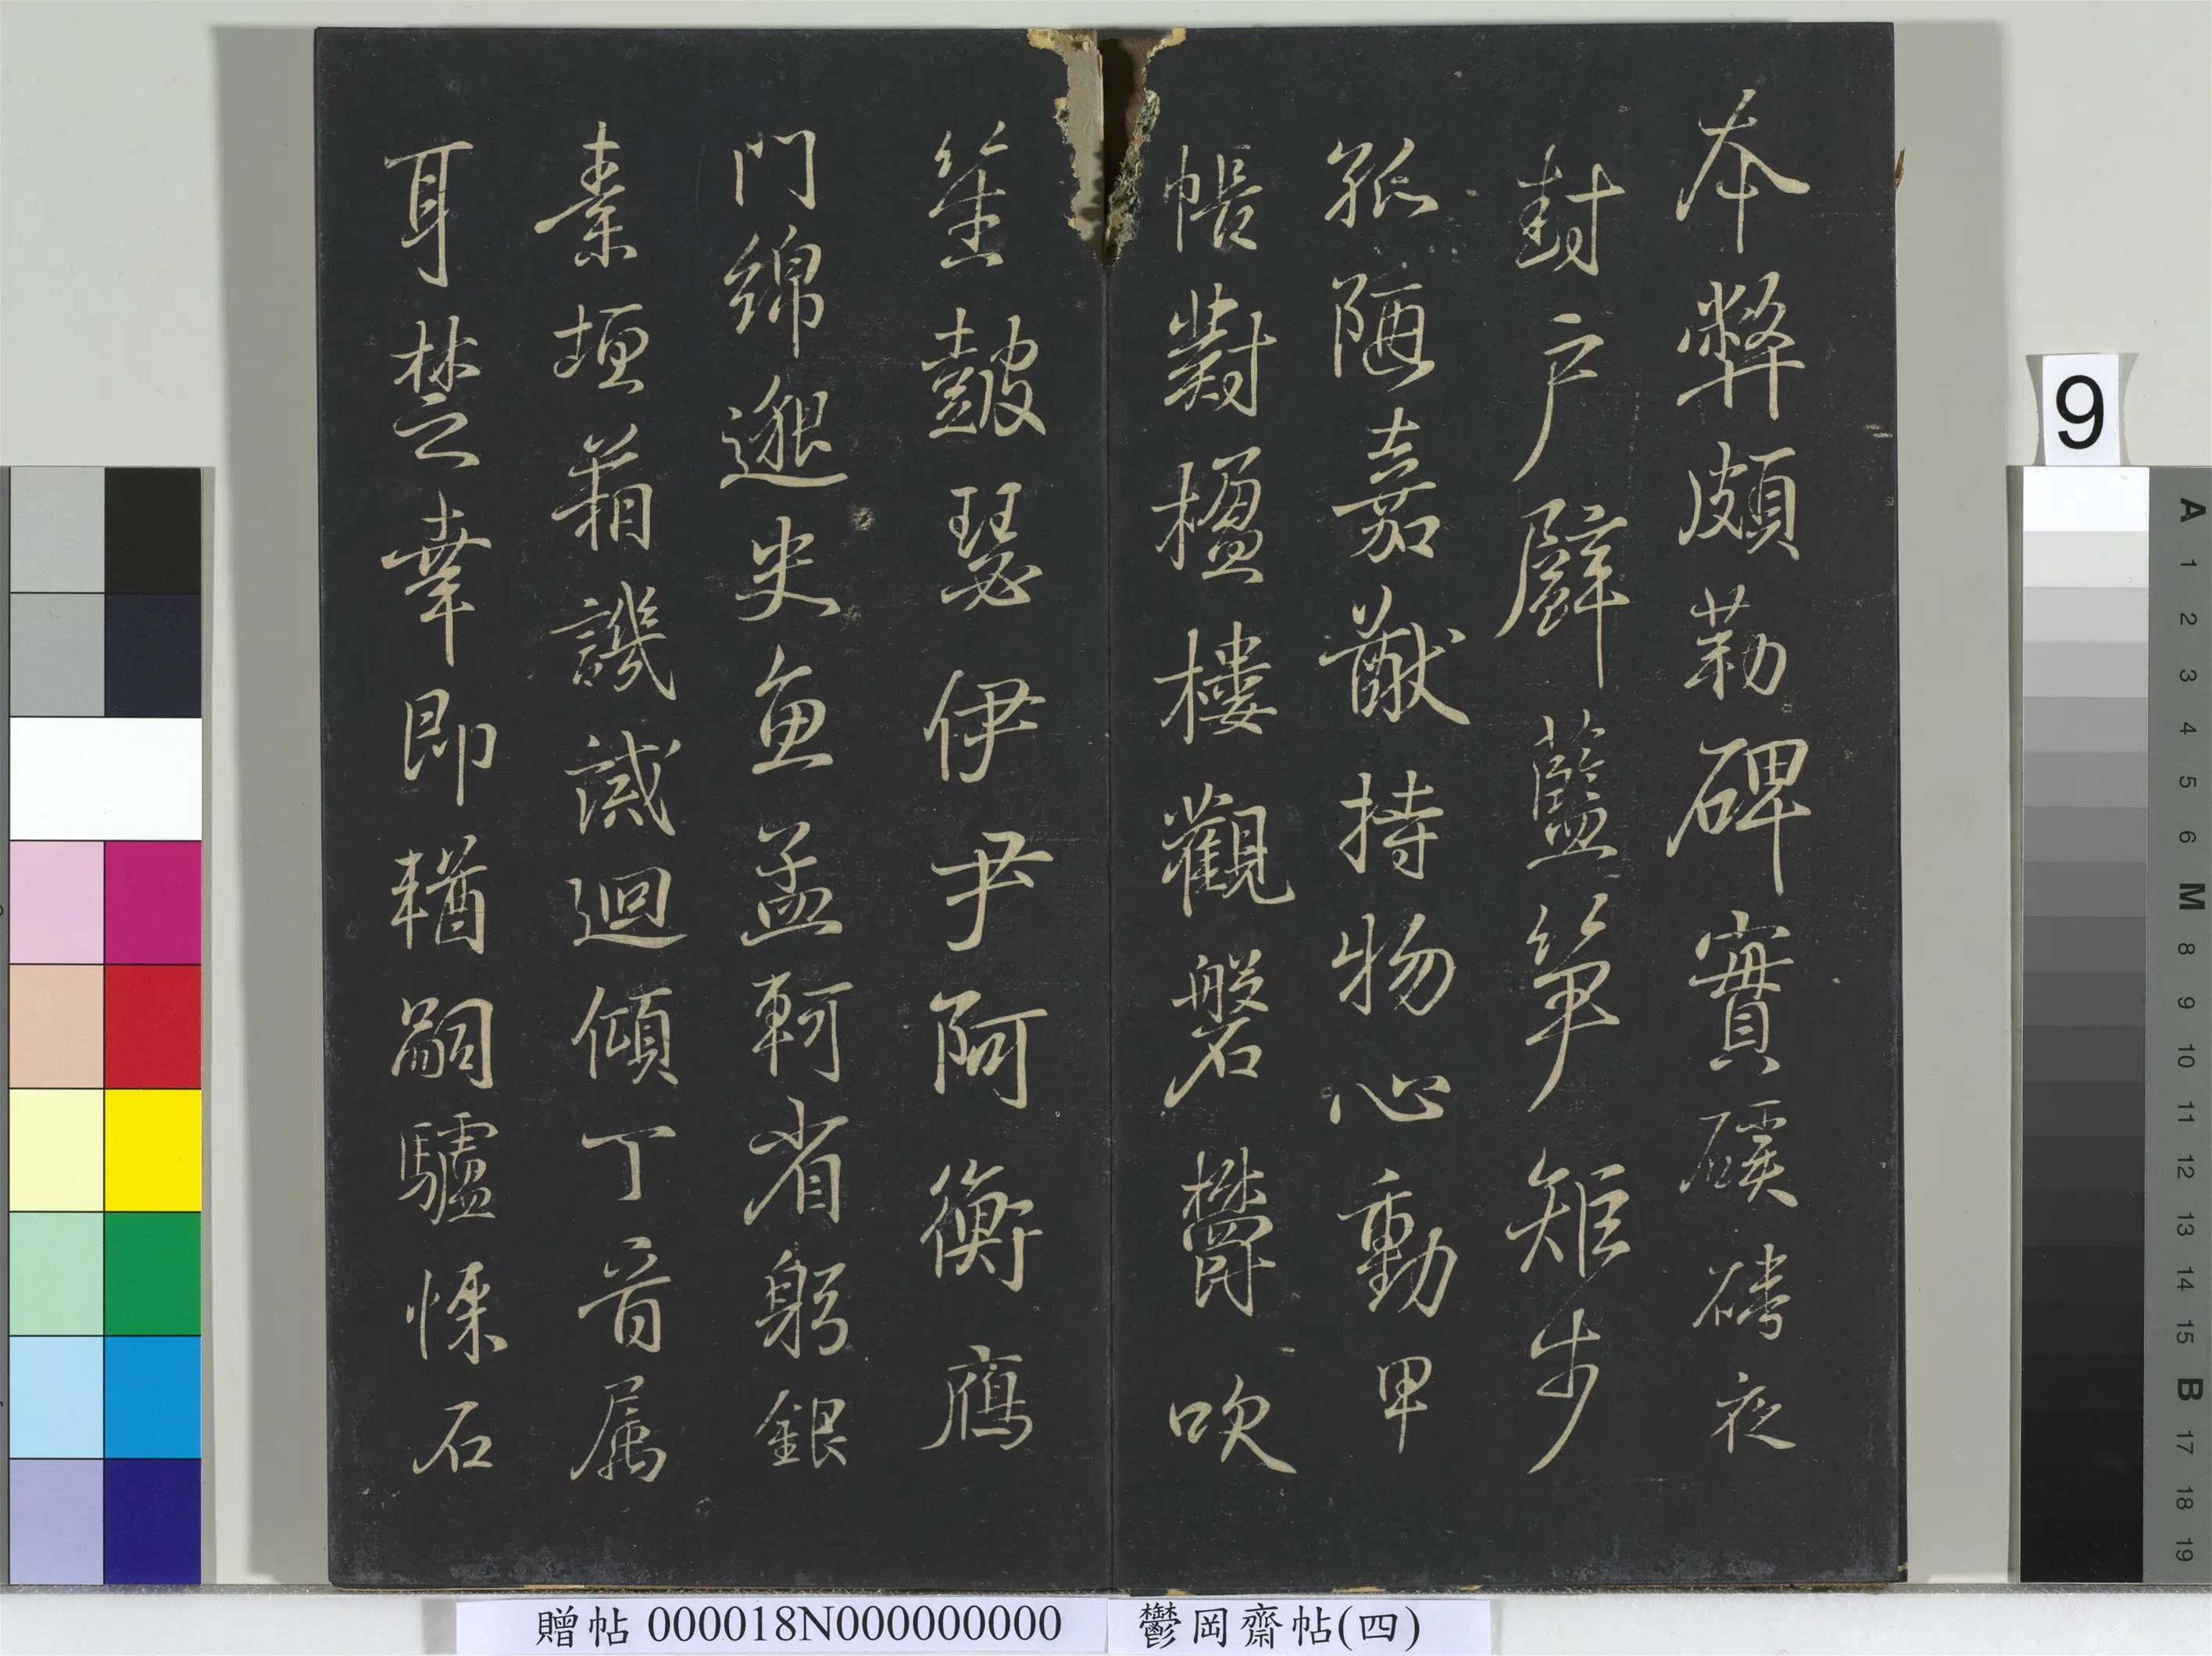 本弊頗勒碑實夜
封戶壁藍筍矩步
孤陋嘉猷持物心動甲
帳對楹樓觀磐鬱吹
笙鼓瑟伊尹阿衡鴈
門綿邈史魚孟軻省躬銀
素垣籍譏誡迴傾丁音属
耳楚幸即輶嗣驢慄石
贈帖 000018N000000000
鬱岡齋帖(四)
9
A
1
2
3
4
5
6
M
8
9
10
11
12
13
14
15
B
17
18
19